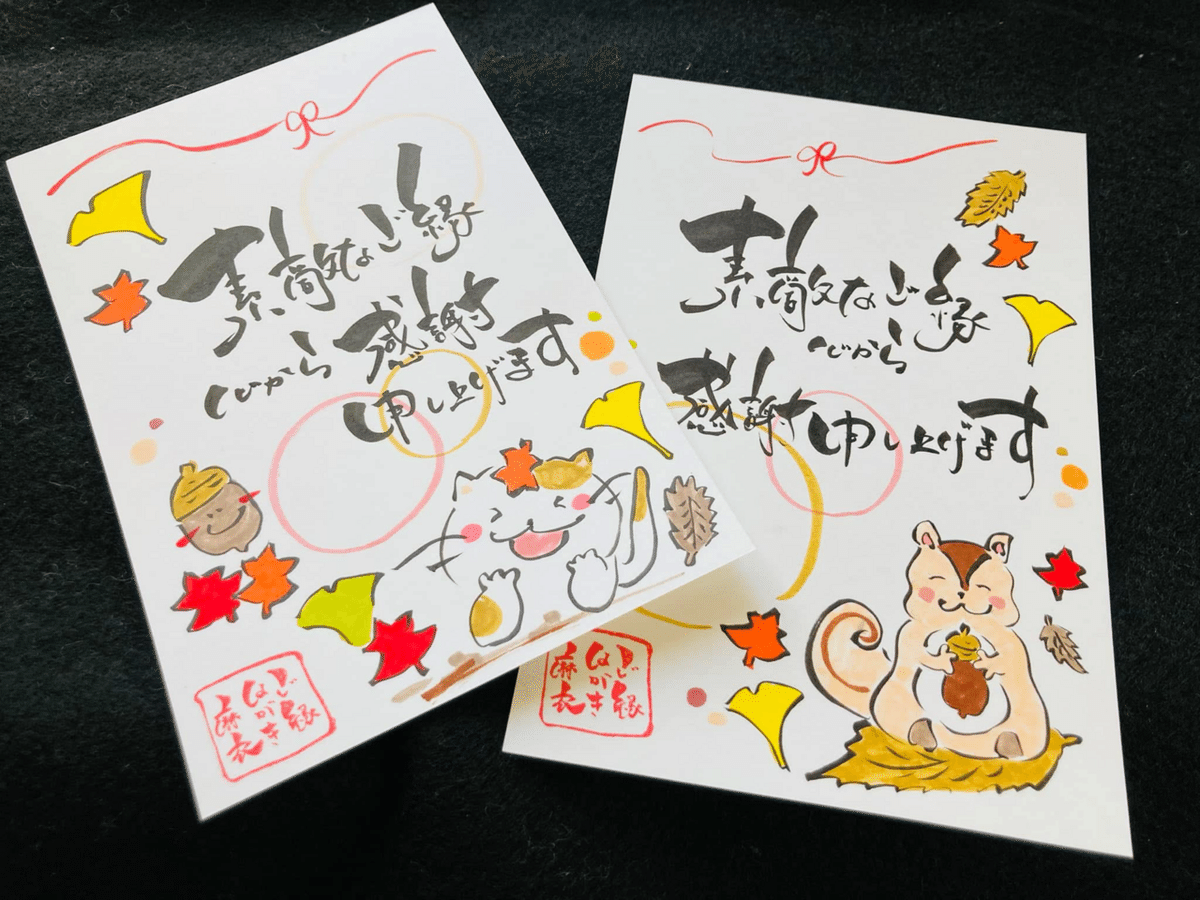 素敵なご縁
心から感謝
申し上げます
ご縁
はがき
麻衣
素敵なご縁
心から
感謝申し上げます
ご縁
はがき
麻衣